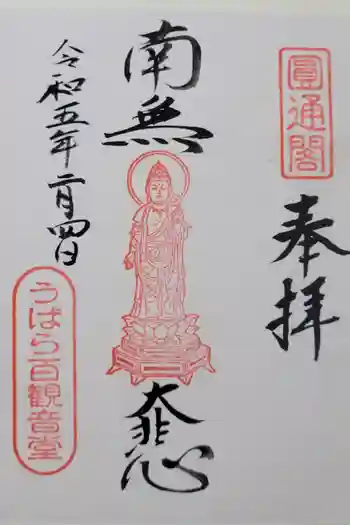 圓通閣
奉拝
南無
大悲心
令和五年二月四日
うばら百観音堂